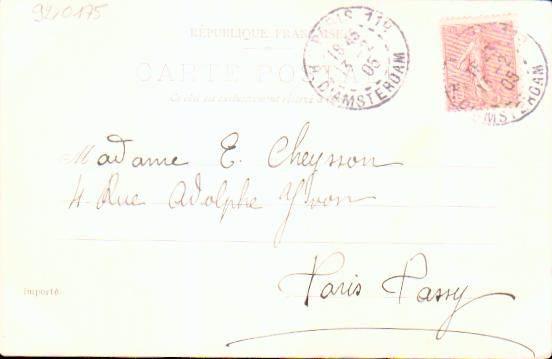 920175
RÉPUBLIQUE FRANÇAISE
CARTE POSTALE
Ce côté est exclusivement réservé à
PARIS 118
18 45
13 -2
05
R. D'AMSTERDAM
05
AMSTERDAM
Madame E. Cheysson
4 Rue Adolphe Yvon
Paris Passy
importé.